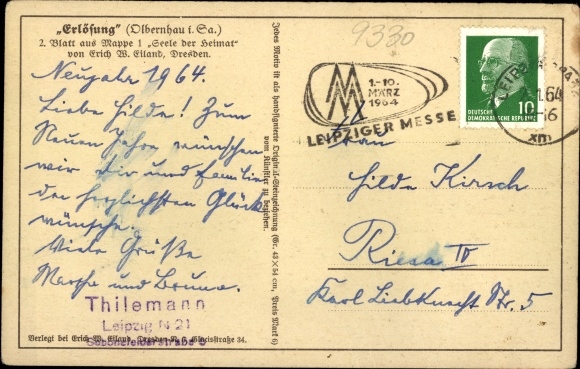 „Erlösung" (Olbernhau i. Sa.)
2. Blatt aus Mappe 1 „Seele der Heimat"
von Erich W. Eiland, Dresden.
Neujahr 1964.
Liebe Hilde! Zum
Neuen Jahre wünschen
wir dir und Familie
den herzlichsten Glück
wünsche.
Viele Grüße
Martha und Bruno.
Thilemann
Leipzig N 21
Verlegt bei Erich W. Eiland, Dresden-N. 6, Glacisstraße 34.
Jedes Motiv ist als handsignierte Original-Steinzeichnung (Gr. 43×54 cm, Preis Mark 6)
vom Künstler zu beziehen.
9330
MM
1.-10.
MÄRZ
1964
LEIPZIGER MESSE
DEUTSCHE
DEMOKRATISCHE REPUBLIK
10
1.64
Frau
Hilde Kirsch
Riesa IV
Karl Liebknecht Str. 5